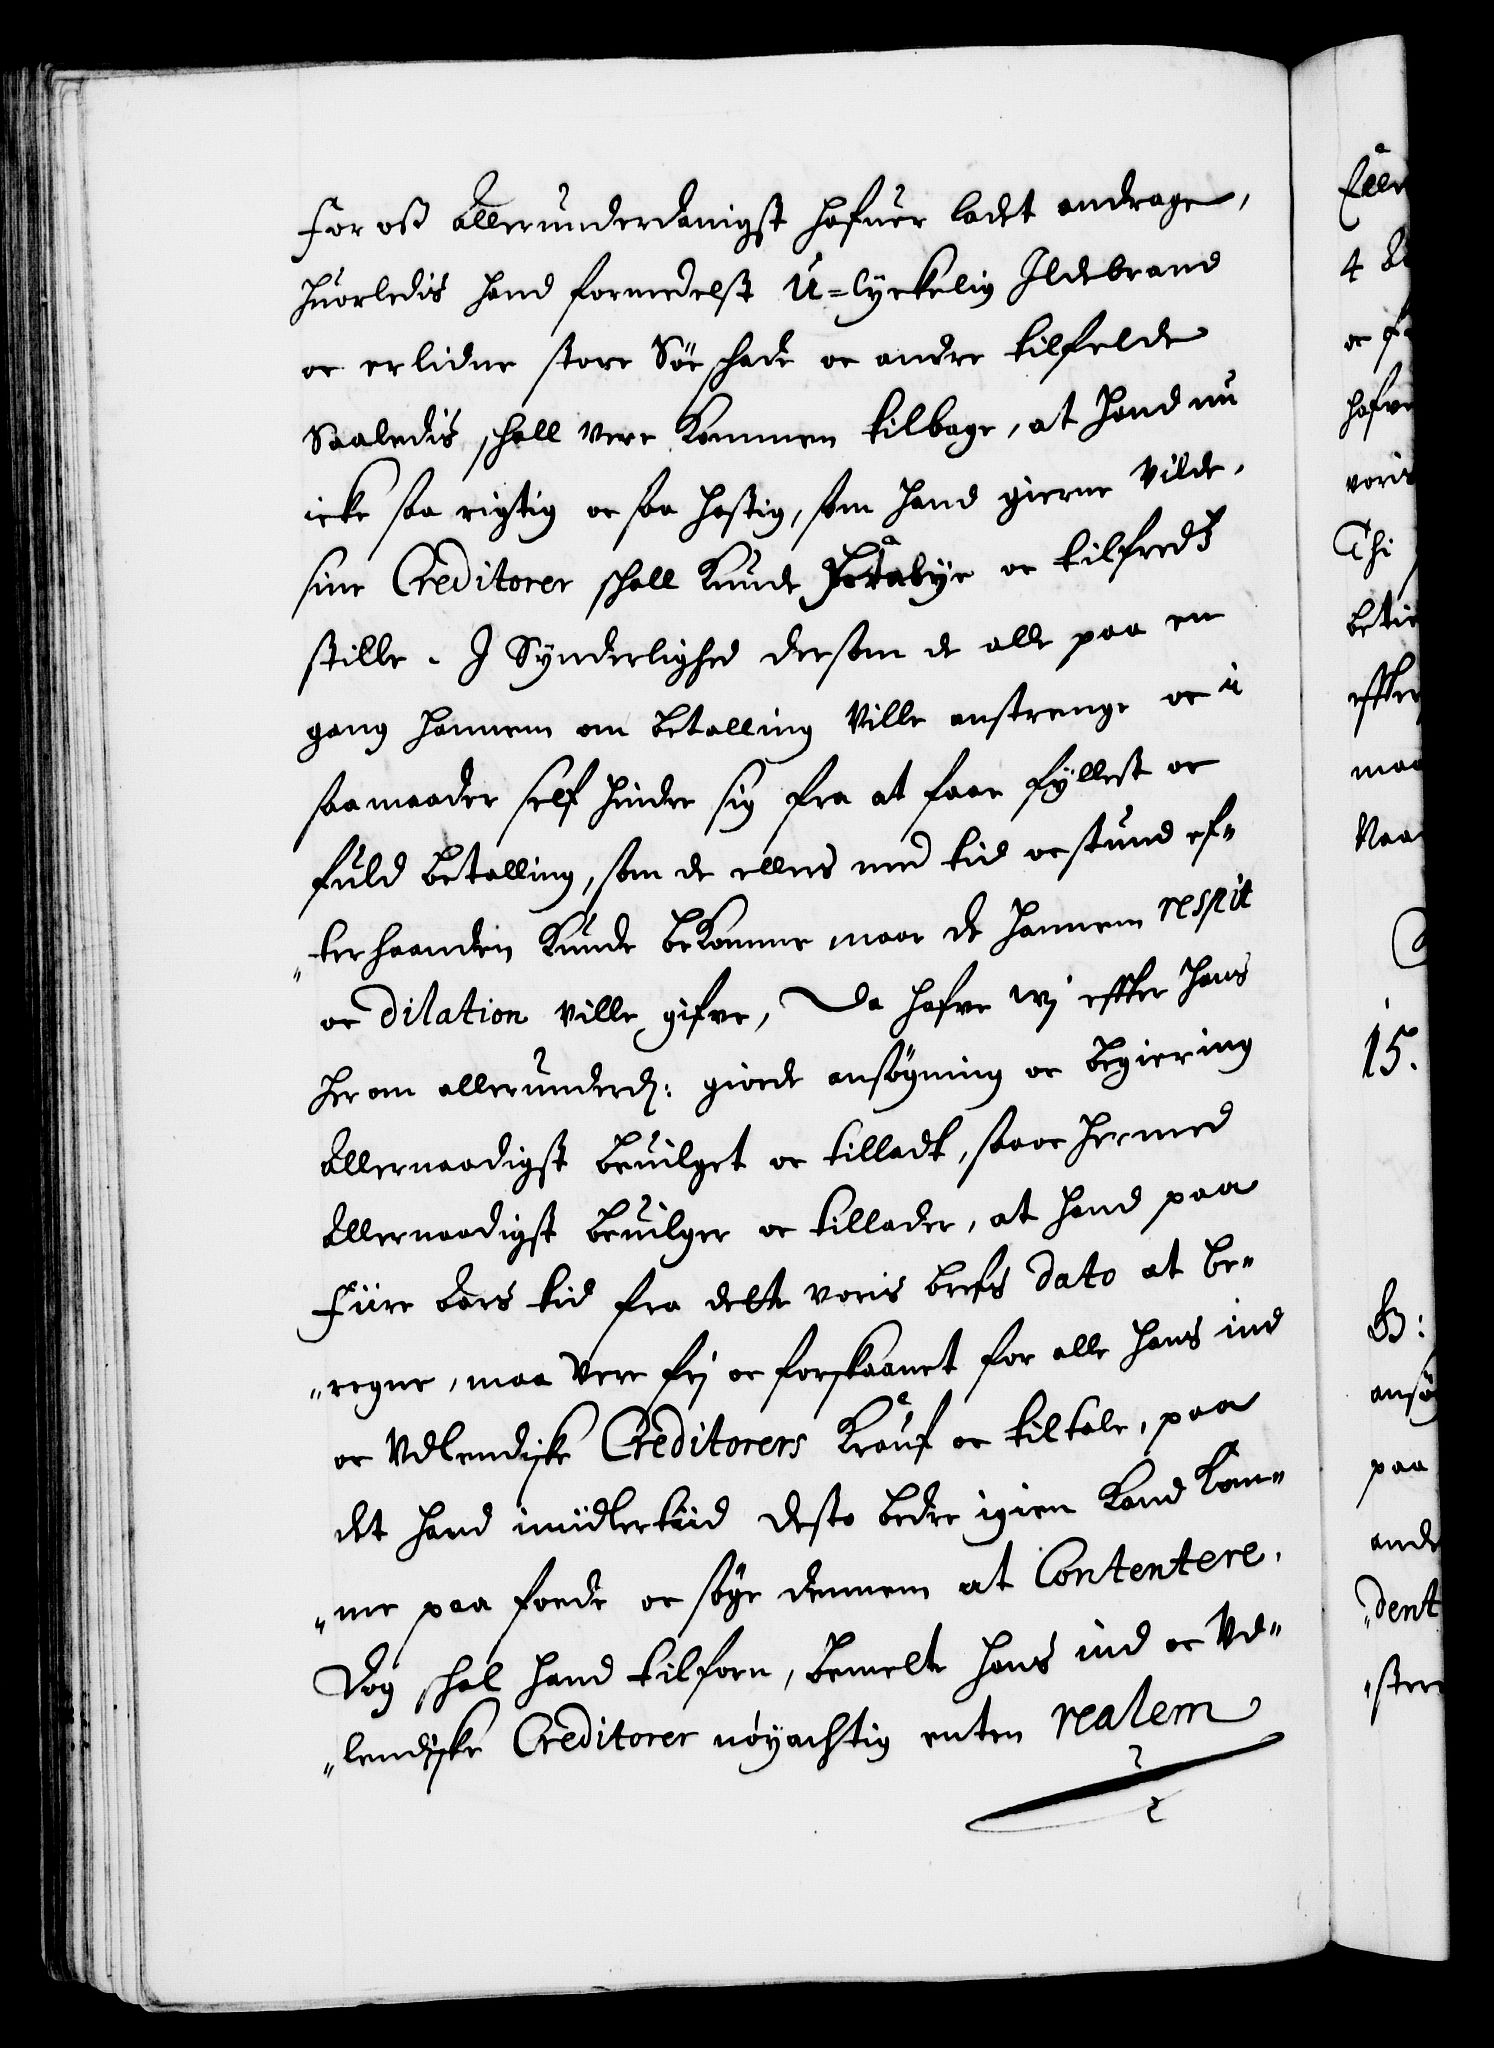 for osz Allerunderdanigst hafuer ladet andrage,
huorledis hand formedelst U=lyckelig Ildebrand
oc erlidne store Söe schade oc andre tilfelde
Saaledis schall vere Kommen tilbage, at hand nu
icke saa rigtig oc saa hastig, som hand gierne Vilde,
sine Creditorer schall Kunde oc tilfredz
stille. I Synderlighed dersom de alle paa en
gang hannem om betalling Ville anstrenge oc i
saa maader self hindre sig fra at faae fyllest oc
fuld betalling, som de ellers med tid oc stund ef-
"terhaanden Kunde beKomme naar de hannem respit
oc dilation ville gifve, Da hafve wj effter hans
her om allerunderd: giorde ansögning oc begiering
Allernaadigst beuilget oc tilladt, saa oc hermed
Allernaadigst beuilger oc tillader, at hand paa
fiire Aars tid fra dette voris brefs dato at be-
"regne, maa Vere frj oc forskaanet for alle hans ind
oc Vdlendiske Creditorers Krauf oc tiltale, paa
det hand imidlertiid desto bedre igien Kand Kom-
"me paa fode oc söge dennem at Contentere.
Dog schal hand tilforn, bemelte hans ind oc Vd-
"lendiske Creditorer nöyachtig enten realem
15.